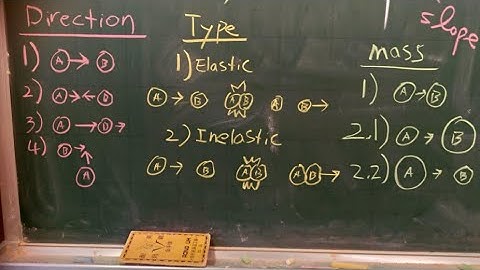 Direction
1) A → B
2) A → ← B
3) A → B →
4) B →
A
Type
1) Elastic
A → B A B A B →
2) Inelastic
A → B A B A B →
slope
mass
1) A → B
2.1) A → B
2.2) A → B